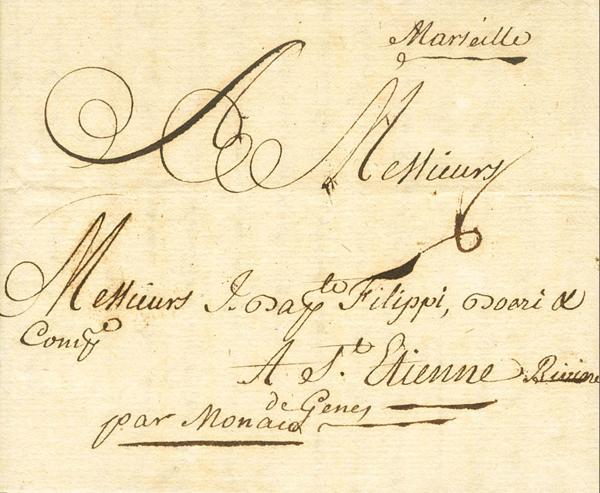 Marseille
A Messieurs
Messieurs J. Bapte Filippi, &
Compe
A St. Etienne
de Genes
par Monaco